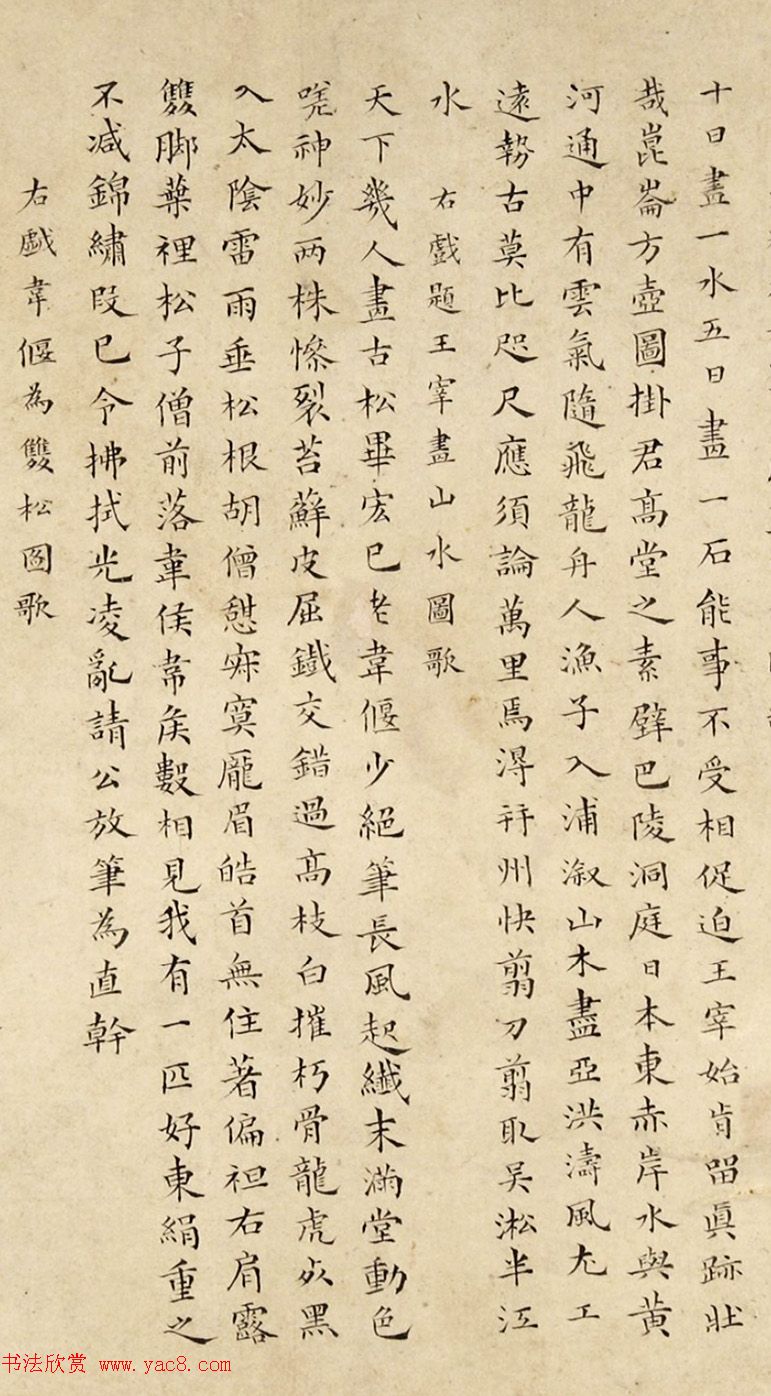 十日畫一水五日畫一石能事不受相促迫王宰始肯留真跡壯
哉崑崙方壺圖掛君高堂之素壁巴陵洞庭日本東赤岸水與黃
河通中有雲氣隨飛龍舟人漁子入浦漵山木盡亞洪濤風尤工
遠勢古莫比咫尺應須論萬里焉得并州快剪刀翦取吳淞半江
水　右戲題王宰畫山水圖歌
天下幾人畫古松畢宏已老韋偃少絕筆長風起纖末滿堂動色
嗟神妙兩株慘裂苔蘚皮屈鐵交錯過高枝白摧朽骨龍虎死黑
入太陰雷雨垂松根胡僧憇寂寞龐眉皓首無住著偏袒右肩露
雙脚葉裡松子僧前落韋侯韋侯數相見我有一匹好東絹重之
不減錦繡段已令拂拭光凌亂請公放筆為直幹
右戲韋偃為雙松圖歌
书法欣赏 www.yac8.com